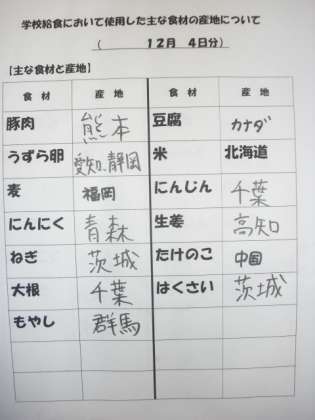 学校給食において使用した主な食材の産地について
( 12月 4日分)
【主な食材と産地】
食 材 産 地 食 材 産 地
豚肉 熊本 豆腐 カナダ
うずら卵 愛知、静岡 米 北海道
麦 福岡 にんじん 千葉
にんにく 青森 生姜 高知
ねぎ 茨城 たけのこ 中国
大根 千葉 はくさい 茨城
もやし 群馬